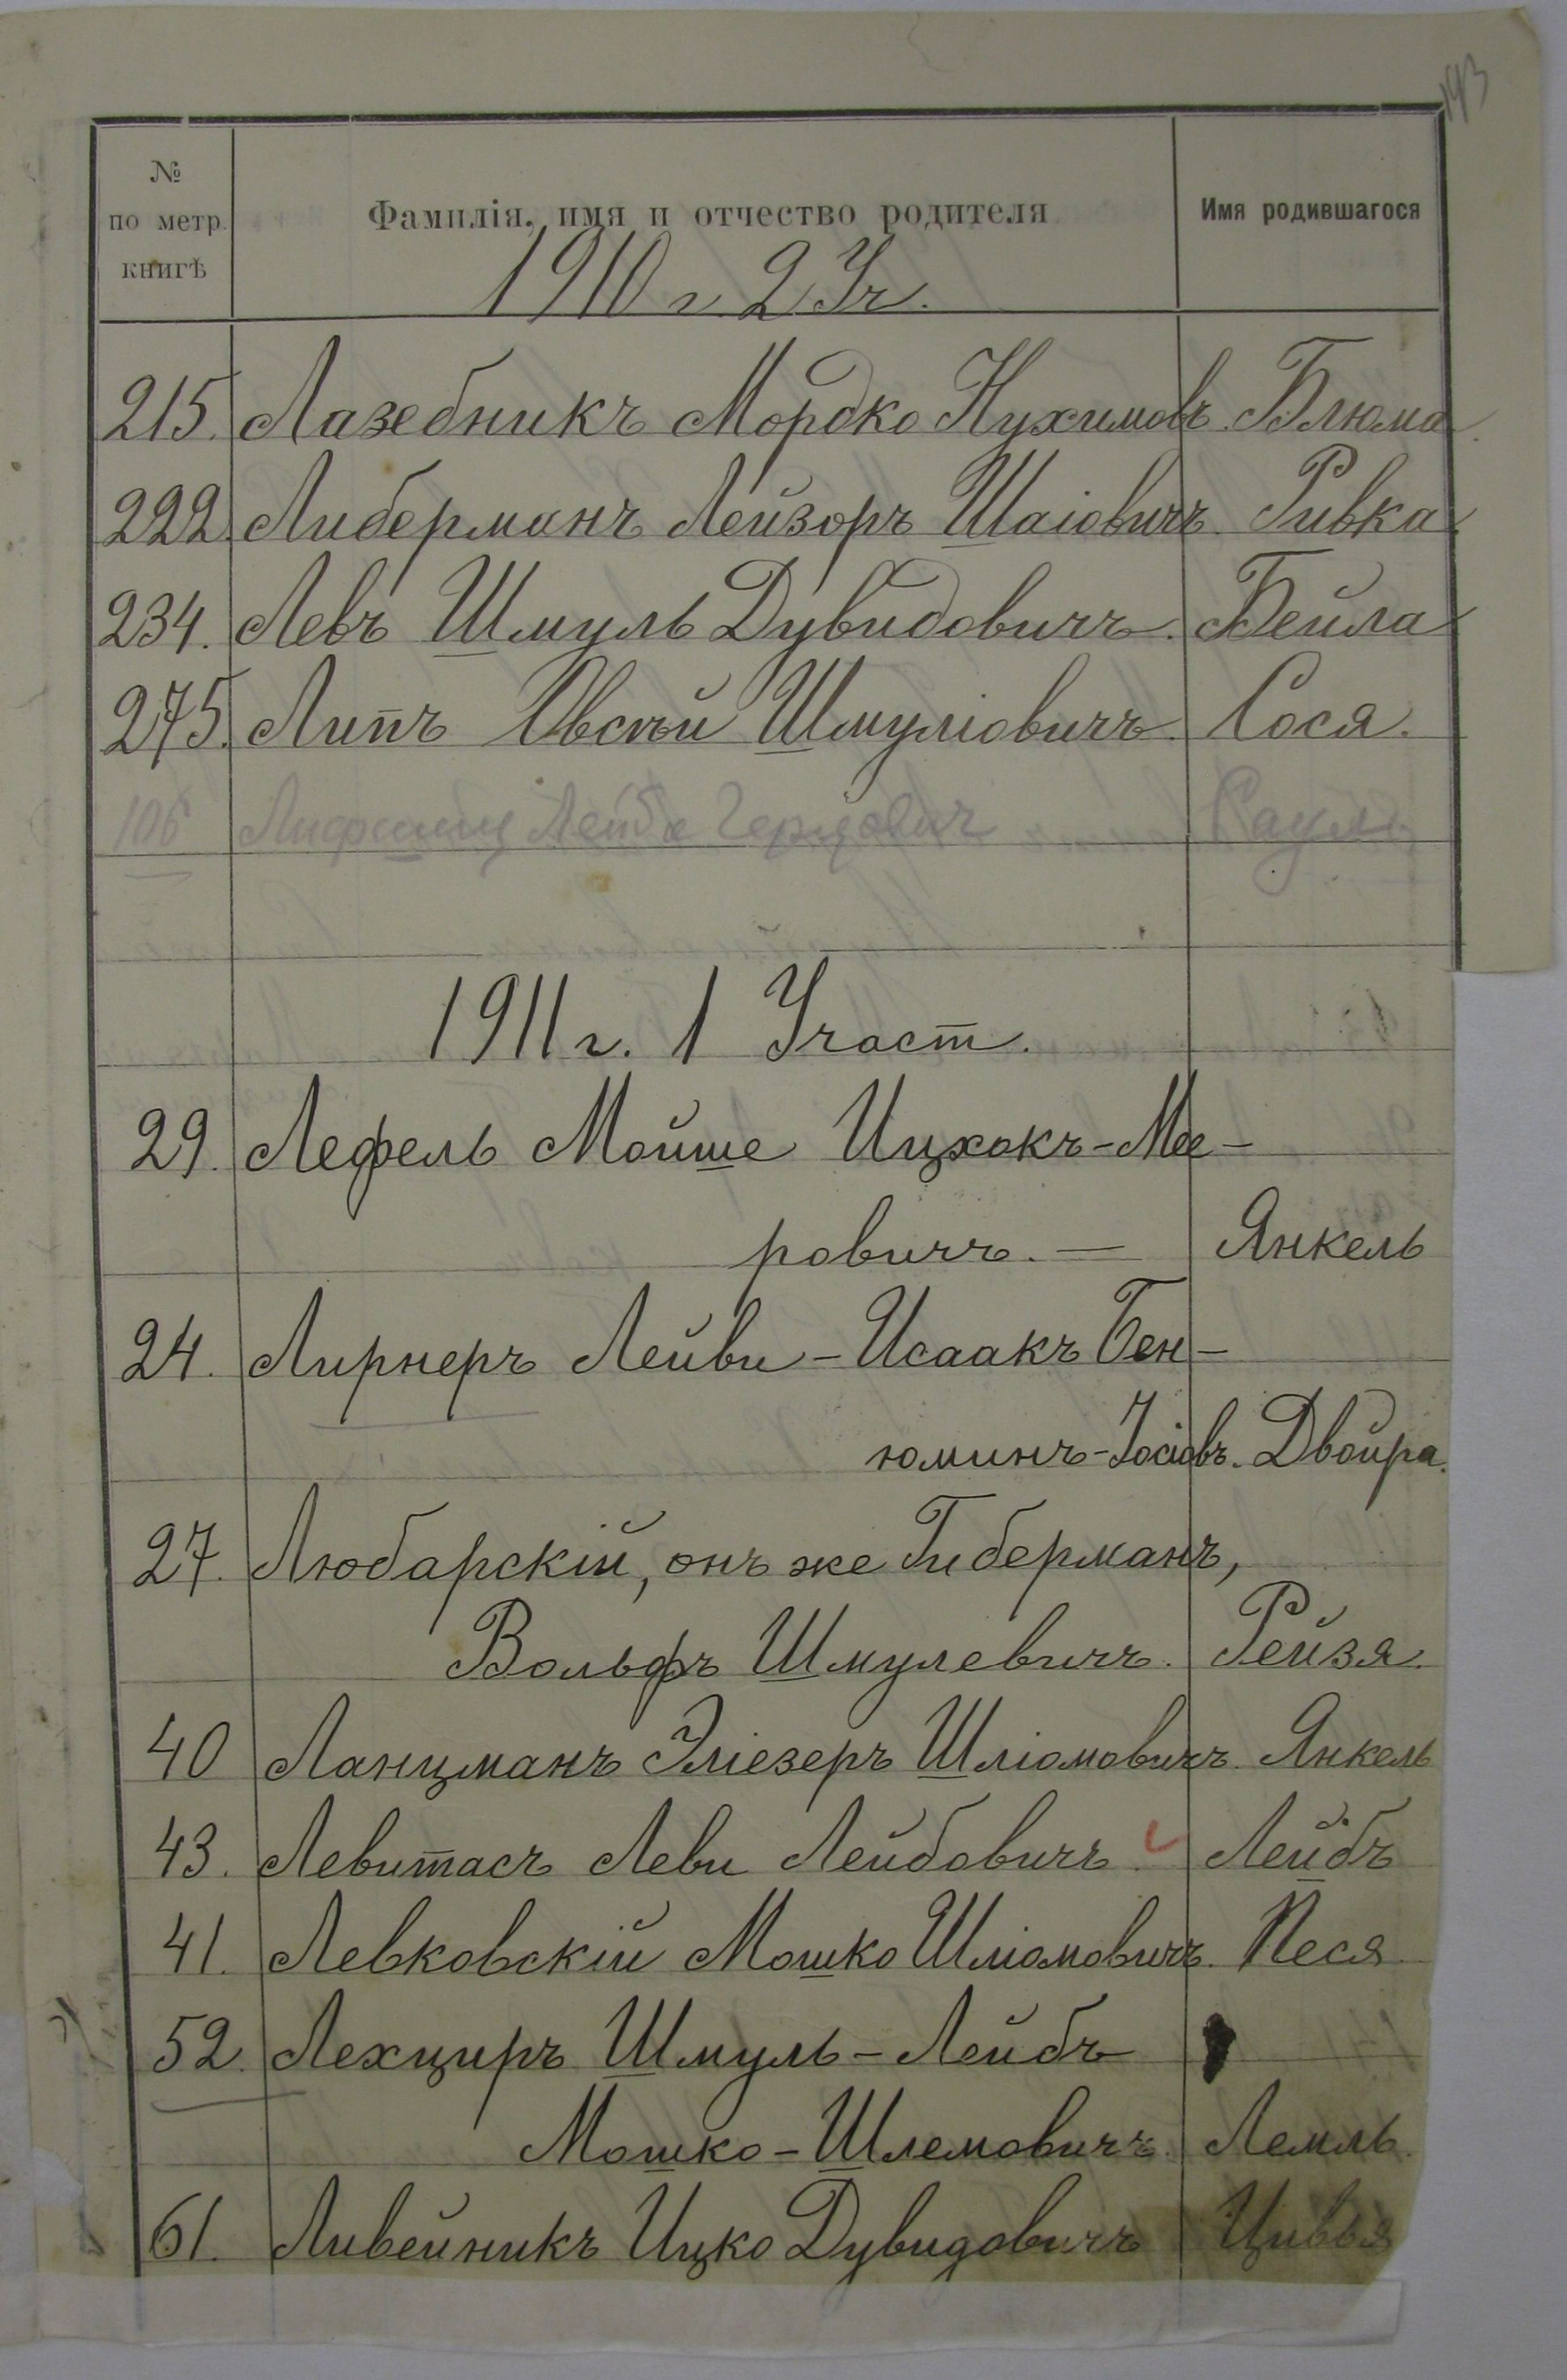 193
№ по метр. книгѣ Фамилія, имя и отчество родителя Имя родившагося
1910 г. 2 Уч.
215. Лазебникъ Мордко Нухимовъ. Блюма.
222. Либерманъ Лейзоръ Шаіовичъ. Ривка
234. Левъ Шмуль Дувидовичъ. Бейла
275. Липъ Овсѣй Шмуліовичъ. Сося.
106 Лифшиц Лейба Герцович
1911 г. 1 Участ.
29. Лефель Мойше Ицхокъ-Мее-
ровичъ. — Янкель
24. Лирнеръ Лейви-Исаакъ Бен-
юминъ-Іосіовъ. Двойра.
27. Любарскій, онъ же Гиберманъ,
Вольфъ Шмулевичъ. Рейзя.
40 Ланцманъ Эліезеръ Шліомовичъ. Янкель
43. Левитасъ Леви Лейбовичъ. Лейбъ
41. Левковскій Мошко Шліомовичъ. Песя
52. Лехциръ Шмуль-Лейбъ
Мошко-Шлемовичъ. Лемль.
61. Ливейникъ Ицко Дувидовичъ Цивья